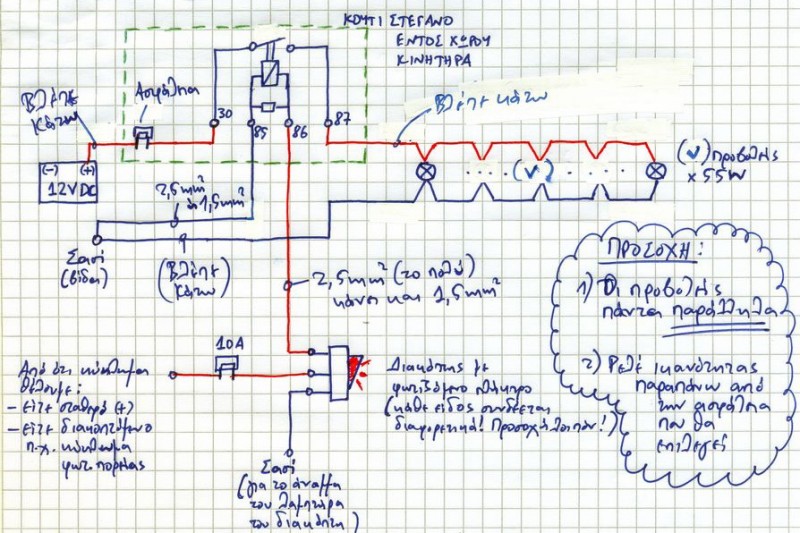 ΚΟΥΤΙ ΣΤΕΓΑΝΟ
ΕΝΤΟΣ ΧΩΡΟΥ
ΚΙΝΗΤΗΡΑ
Βλέπε
κάτω
Ασφάλεια
30
85
86
87
Βλέπε κάτω
(-) (+)
12V DC
(ν) προβολείς
x 55W
(ν)
2,5mm²
ή 1,5mm²
Σασί
(βίδα)
(Βλέπε
κάτω)
2,5mm² (το πολύ)
κάνει και 1,5mm²
ΠΡΟΣΟΧΗ:
1) Οι προβολείς
πάντα παράλληλα
2) Ρελέ ικανότητας
παραπάνω από
την ασφάλεια
που θα
επιλεγεί
10A
Από ότι κύκλωμα
θέλουμε:
- είτε σταθερό (+)
- είτε διακοπτόμενο
π.χ. κύκλωμα
φώτ. πορείας
Διακόπτης με
φωτιζόμενο πλήκτρο
(κάθε είδος συνδέεται
διαφορετικά! Προσοχή λοιπόν!)
Σασί
(για το άναμμα
του λαμπτήρα
του διακόπτη)